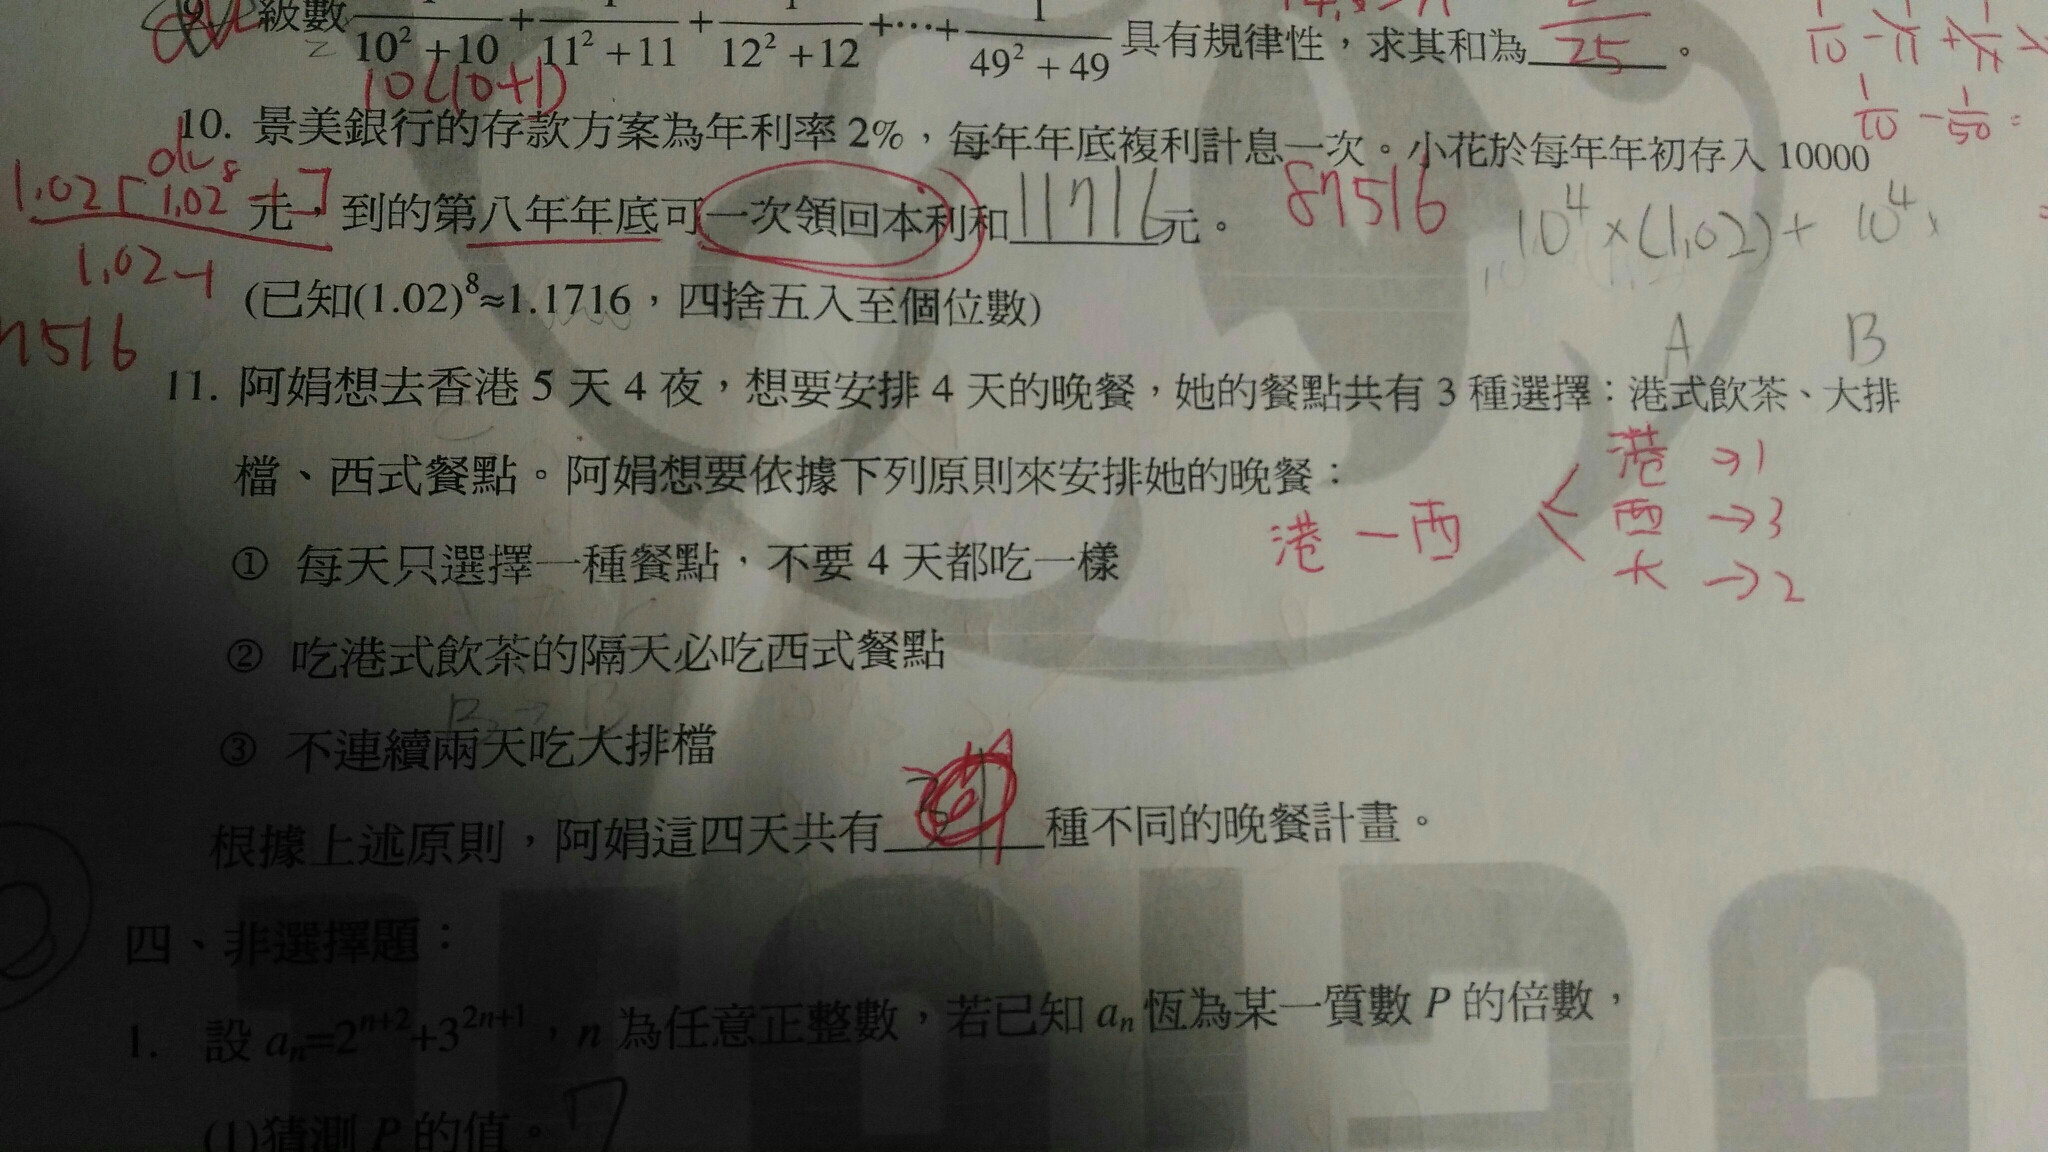 級數 1/(10²+10) + 1/(11²+11) + 1/(12²+12) +⋯+ 1/(49²+49) 具有規律性，求其和為 /25 。
10(10+1)
1/10 - 1/50 =
10. 景美銀行的存款方案為年利率2%，每年年底複利計息一次。小花於每年年初存入10000
ok
1.02[1.02⁸-1]
1.02-1
元，到的第八年年底可一次領回本利和11716元。 87516
10⁴×(1.02)+ 10⁴×
(已知(1.02)⁸≈1.1716，四捨五入至個位數)
7516
A B
11. 阿娟想去香港5天4夜，想要安排4天的晚餐，她的餐點共有3種選擇：港式飲茶、大排
檔、西式餐點。阿娟想要依據下列原則來安排她的晚餐：
港 →1
港 — 西 西 →3
大 →2
① 每天只選擇一種餐點，不要4天都吃一樣
② 吃港式飲茶的隔天必吃西式餐點
③ 不連續兩天吃大排檔
根據上述原則，阿娟這四天共有 種不同的晚餐計畫。
四、非選擇題：
1. 設 aₙ=2ⁿ⁺²+3²ⁿ⁺¹，n 為任意正整數，若已知 aₙ 恆為某一質數 P 的倍數，
(1)猜測 P 的值。 7